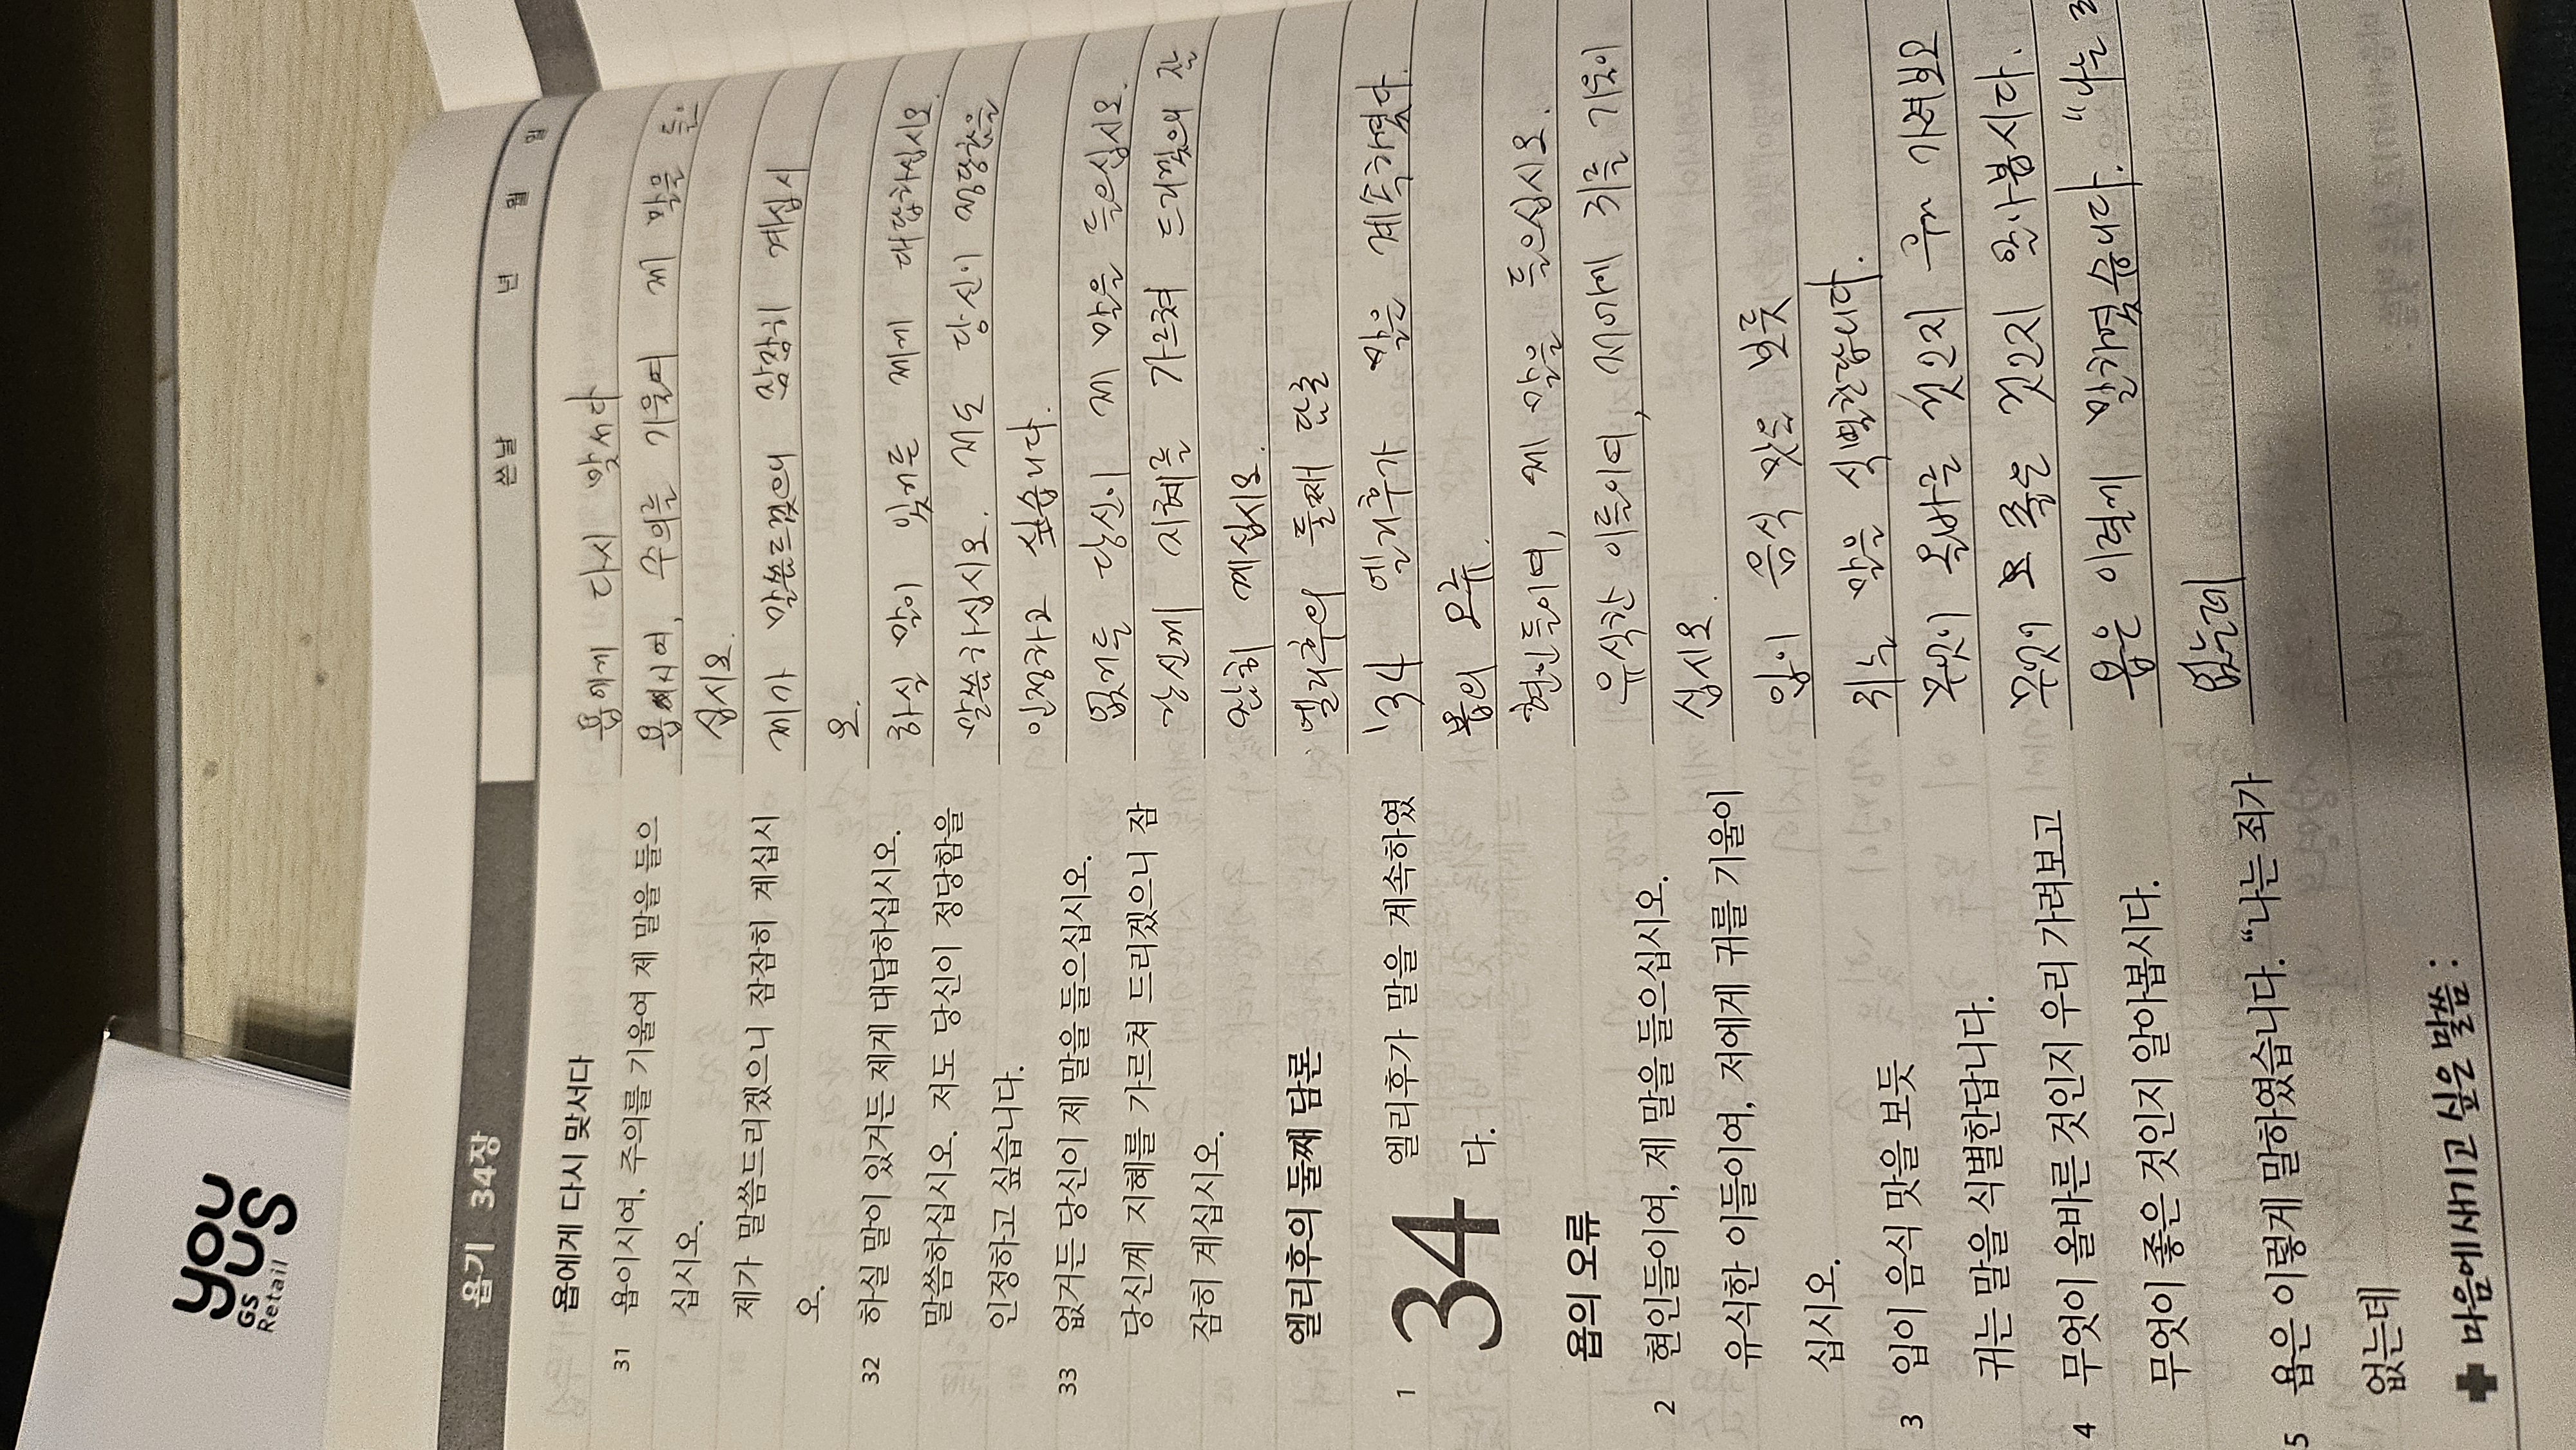 you
us
GS
Retail
욥기 34장
쓴날 년 월 일
욥에게 다시 맞서다
31 욥이시여, 주의를 기울여 제 말을 들으
십시오.
제가 말씀드리겠으니 잠잠히 계십시
오.
32 하실 말이 있거든 제게 대답하십시오.
말씀하십시오. 저도 당신이 정당함을
인정하고 싶습니다.
33 없거든 당신이 제 말을 들으십시오.
당신께 지혜를 가르쳐 드리겠으니 잠
잠히 계십시오.
엘리후의 둘째 담론
34
1 엘리후가 말을 계속하였
다.
욥의 오류
2 현인들이여, 제 말을 들으십시오.
유식한 이들이여, 저에게 귀를 기울이
십시오.
3 입이 음식 맛을 보듯
귀는 말을 식별한답니다.
4 무엇이 올바른 것인지 우리 가려보고
무엇이 좋은 것인지 알아봅시다.
5 욥은 이렇게 말하였습니다. “나는 죄가
없는데
마음에 새기고 싶은 말씀 :
욥에게 다시 맞서다
주의를 기울여 제 말을 들으
십시오.
제가 말씀드리겠으니 잠잠히 계십시
오.
하실 말이 있거든 제게 대답하십시오.
말씀하십시오. 저도 당신이 정당함을
인정하고 싶습니다.
없거든 당신이 제 말을 들으십시오.
당신께 지혜를 가르쳐 드리겠으니 잠
잠히 계십시오.
엘리후의 둘째 담론
34 엘리후가 말은 계속하였다.
욥의 오류.
현인들이여, 제 말을 들으십시오.
유식한 이들이여, 저에게 귀를 기울이
십시오.
입이 음식 맛을 보듯
귀는 말을 식별한답니다.
무엇이 올바른 것인지 우리 가려보고
무엇이 좋은 것인지 알아봅시다.
욥은 이렇게 말하였습니다. "나는 죄
없는데